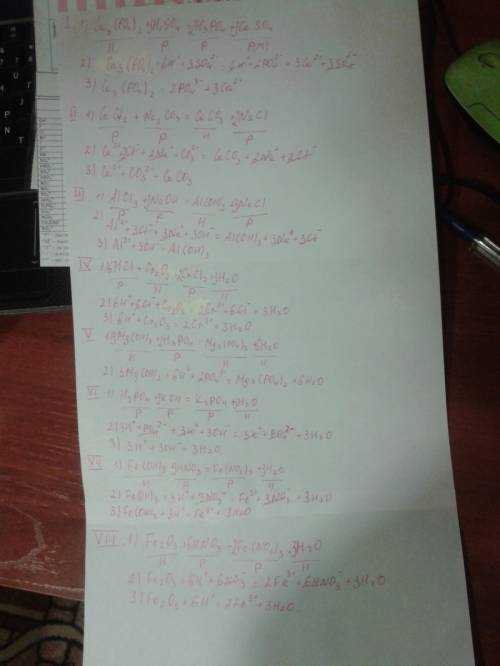 I. 1) Ca3(PO4)2 + 3H2SO4 = 2H3PO4 + 3CaSO4
Н Р Р Р(М)
2) Ca3(PO4)2 + 6H+ + 3SO4²- = 6H+ + 2PO4³- + 3Ca²+ + 3SO4²-
3) Ca3(PO4)2 = 2PO4³- + 3Ca²+
II 1) CaCl2 + Na2CO3 = CaCO3 + 2NaCl
Р Р Н Р
2) Ca²+ + 2Cl- + 2Na+ + CO3²- = CaCO3 + 2Na+ + 2Cl-
3) Ca²+ + CO3²- = CaCO3
III 1) AlCl3 + 3NaOH = Al(OH)3 + 3NaCl
Р Р Н Р
2) Al³+ + 3Cl- + 3Na+ + 3OH- = Al(OH)3 + 3Na+ + 3Cl-
3) Al³+ + 3OH- = Al(OH)3
IV 1) 6HCl + Cr2O3 = 2CrCl3 + 3H2O
Р Н Р Н
2) 6H+ + 6Cl- + Cr2O3 = 2Cr³+ + 6Cl- + 3H2O
3) 6H+ + Cr2O3 = 2Cr³+ + 3H2O
V 1) 3Mg(OH)2 + 2H3PO4 = Mg3(PO4)2 + 6H2O
Н Р Н Н
2) 3Mg(OH)2 + 6H+ + 2PO4³- = Mg3(PO4)2 + 6H2O
VI 1) H3PO4 + 3KOH = K3PO4 + 3H2O
Р Р Р Н
2) 3H+ + PO4³- + 3K+ + 3OH- = 3K+ + PO4³- + 3H2O
3) 3H+ + 3OH- = 3H2O
VII 1) Fe(OH)3 + 3HNO3 = Fe(NO3)3 + 3H2O
Н Р Р Н
2) Fe(OH)3 + 3H+ + 3NO3- = Fe³+ + 3NO3- + 3H2O
3) Fe(OH)3 + 3H+ = Fe³+ + 3H2O
VIII 1) Fe2O3 + 6HNO3 = 2Fe(NO3)3 + 3H2O
Н Р Р Н
2) Fe2O3 + 6H+ + 6NO3- = 2Fe³+ + 6NO3- + 3H2O
3) Fe2O3 + 6H+ = 2Fe³+ + 3H2O